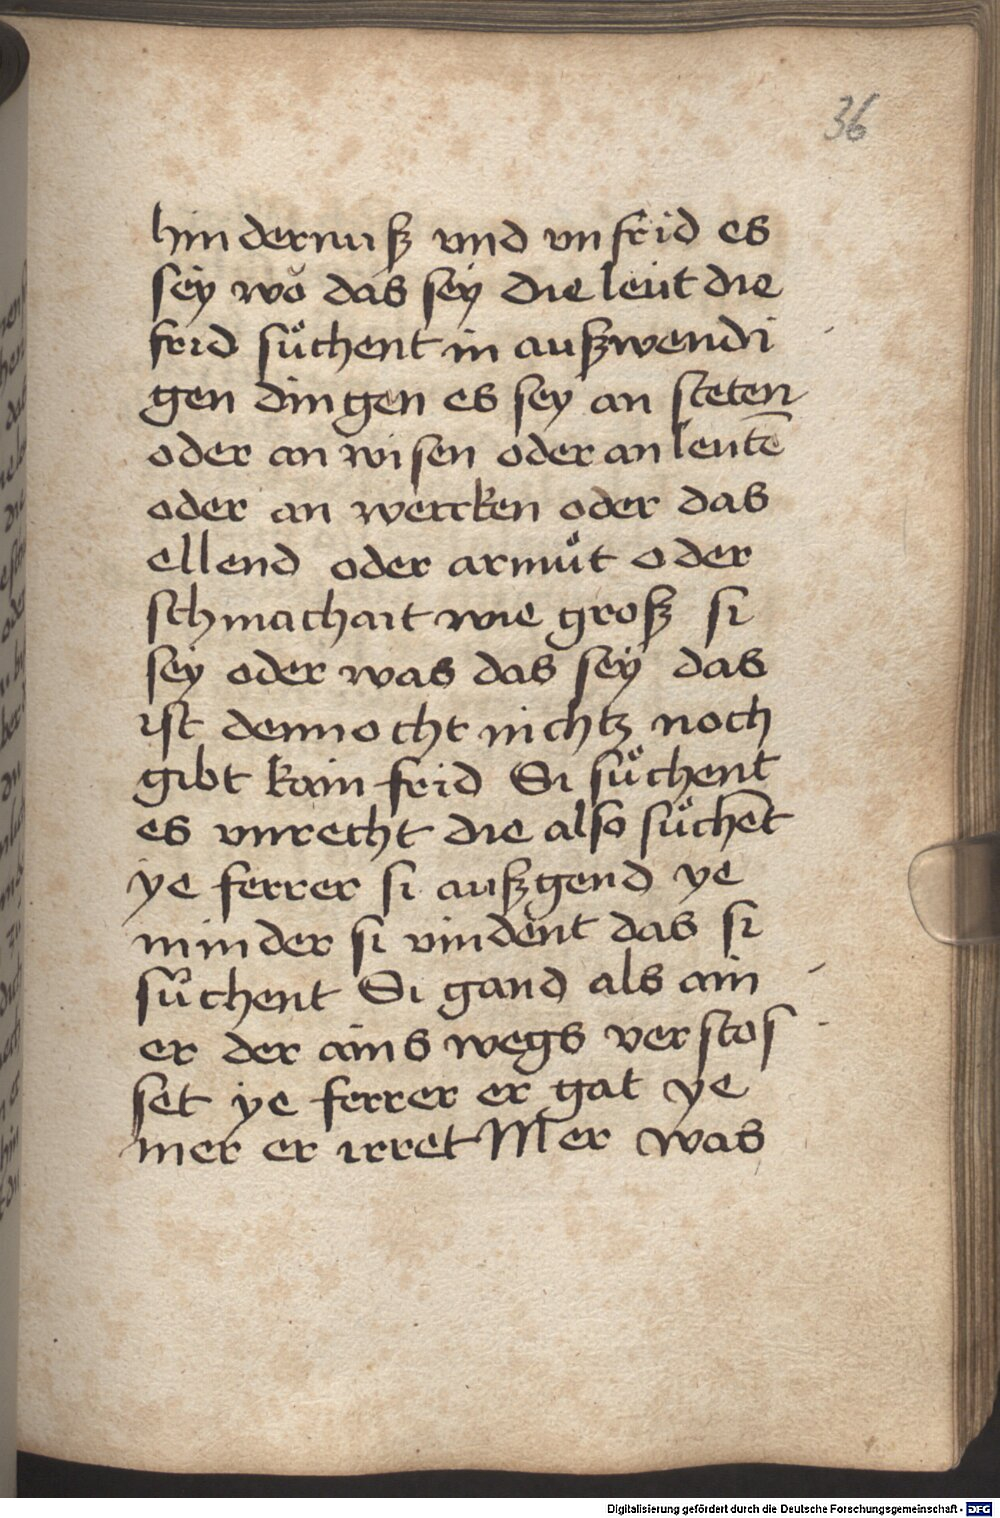 36
hindernuß vnd vnfrid es
sey wo das sey die leüt die
frid sůchent in außwendi
gen dingen es sey an steten
oder an wisen oder an leutē
oder an wercken oder das
ellend oder armůt oder
schmachait wie groß si
sey oder was das seÿ das
ist dennocht nichtz noch
gibt kain frid Si sůchent
es vnrecht die also sůchēt
ye ferrer si außgend ye
minder si vindent das si
sůchent Si gand als ain
er der ains wegs verstos
set ye ferrer er gat ye
mer er irret Mer was
Digitalisierung gefördert durch die Deutsche Forschungsgemeinschaft - DFG